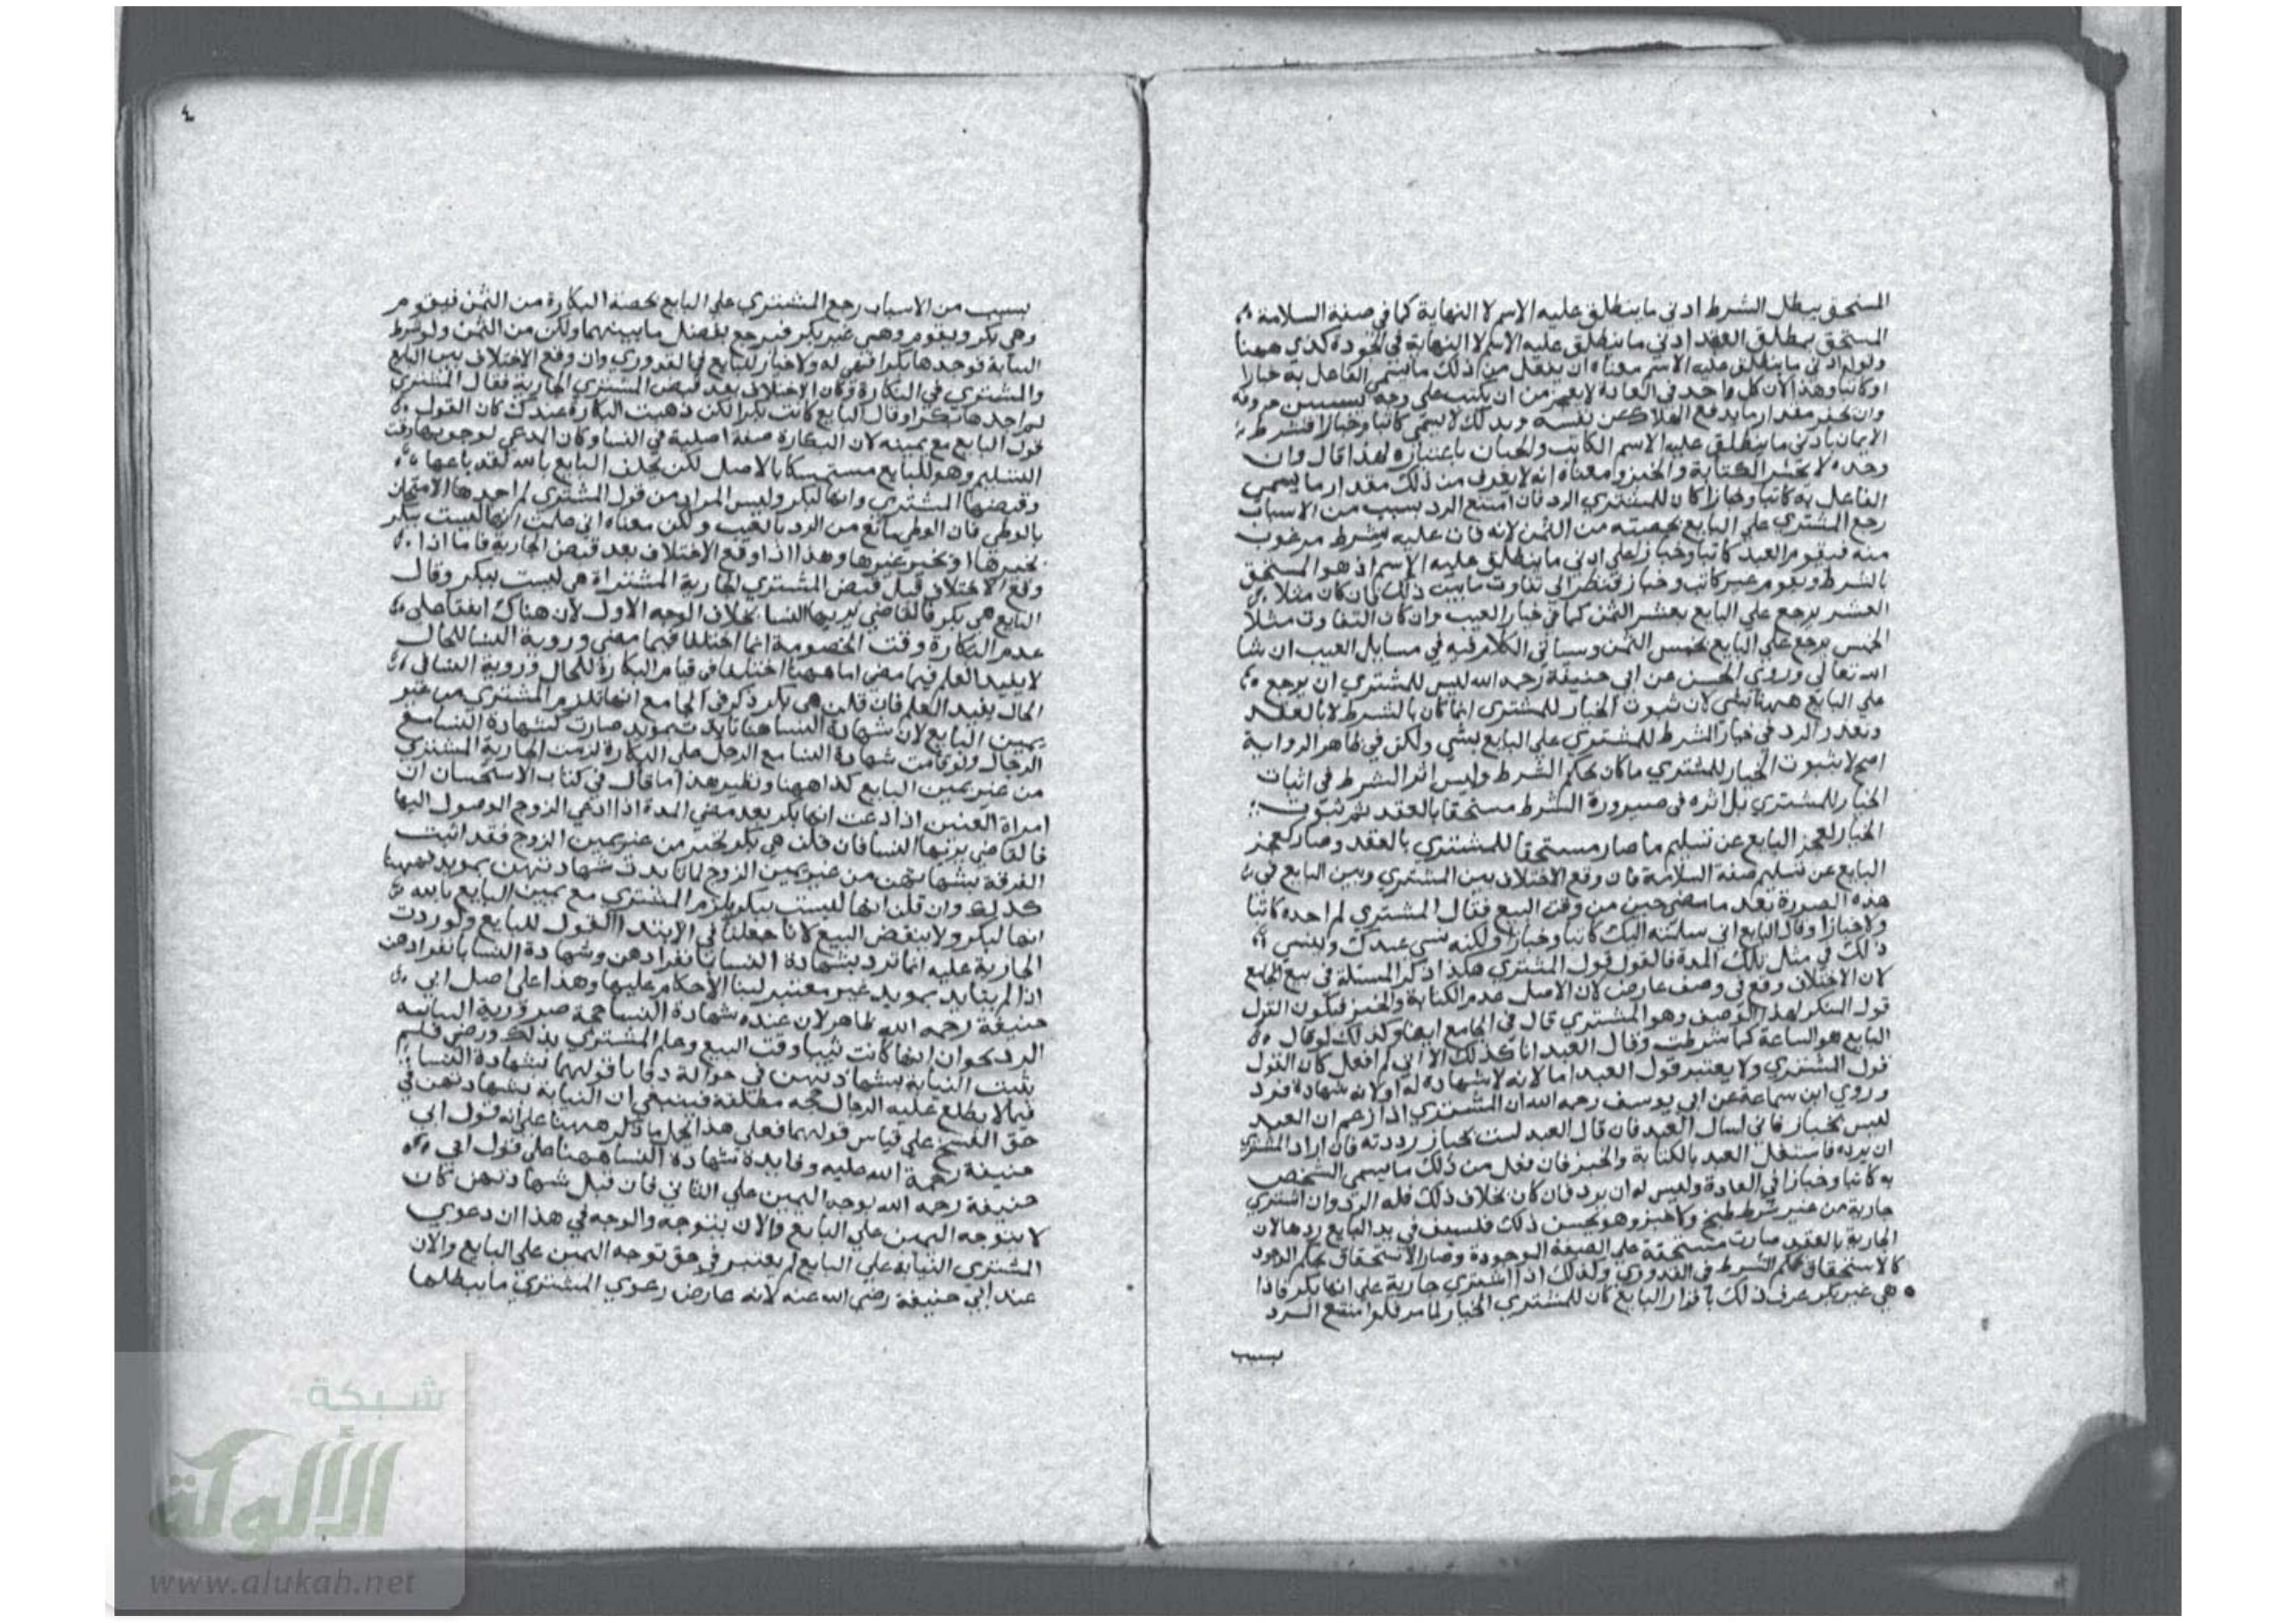 المستحق بمطل الشرط ادني ما ينطلق عليه الاسم لا النهاية كما في صفة السلامة
المستحق بمطلق العقد ادني ما ينطلق عليه الاسم لا النهاية في الجودة كذي ههنا
وقوله ادني ما ينطلق عليه الاسم معناه ان يفعل من ذلك ما يسمي الفاعل به خبازا
اوكاتبا وهذا لان كل واحد في العادة لا يعجز من ان يكتب علي وجه حروفه
وان يخبز مقدار ما يدفع الهلاك عن نفسه وبذلك لا يسمي كاتبا وخبازا فشرط
ادني ما ينطلق عليه الاسم الكاتب والخباز باعتباره لهذا قال وان
وجده لا يحسن الكتابة والخبز ومعناه انه لا يعرف من ذلك مقدار ما يسمي
الفاعل به كاتبا وخبازا كان للمشتري الرد فان امتنع الرد بسبب من الاسباب
رجع المشتري علي البايع بحصته من الثمن لانه فات عليه شرط مرغوب
منه فيقوم العبد كاتبا وخبازا علي ادني ما ينطلق عليه الاسم اذ هو المستحق
بالشرط ويقوم غير كاتب وخباز فينظر الي تفاوت ما بين ذلك فان كان مثلا
العشر يرجع علي البايع بعشر الثمن كما في خيار العيب وان كان التفاوت مثلا
الخمس يرجع علي البايع بخمس الثمن وسياتي الكلام فيه في مسايل العيب ان شا
الله تعالي وروي الحسن عن ابي حنيفة رحمه الله ليس للمشتري ان يرجع
علي البايع ههنا بشي لان ثبوت الخيار للمشتري انما كان بالشرط لا بالعقد
وتعذر الرد في خيار الشرط للمشتري علي البايع بشي ولكن في ظاهر الرواية
اصح لا ثبوت الخيار للمشتري ما كان بحكم الشرط وليس اثر الشرط في اثبات
الخيار للمشتري بل اثره في صيرورة الشرط مستحقا بالعقد ثم ثبوت
الخيار لعجز البايع عن تسليم ما صار مستحقا للمشتري بالعقد وصار كعجز
البايع عن تسليم صفة السلامة فان وقع الاختلاف بين المشتري وبين البايع في
هذه الصورة بعد ما مضي حين من وقت البيع فقال المشتري لم اجده كاتبا
ولا خبازا وقال البايع اني سلمته اليك كاتبا وخبازا ولكنه نسي عندك وينسي
ذلك في مثل تلك المدة فالقول قول المشتري هكذا ذكر المسئلة في بيع الجامع
لان الاختلاف وقع في وصف عارض لان الاصل عدم الكتابة والخبز فيكون القول
قول المنكر لهذا الوصف وهو المشتري قال في الجامع ايضا وكذلك لو قال
البايع هو الساعة كما شرطت وقال العبد انا كذلك الا اني لم افعل كان القول
قول المشتري ولا يعتبر قول العبد اما لانه لا شهادة له او لانه شهادة فرد
وروي ابن سماعة عن ابي يوسف رحمه الله ان المشتري اذا زعم ان العبد
ليس بخباز فاني اسال العبد فان قال العبد لست بخباز رددته فان اراد المشتري
ان يرده فاستعمل العبد بالكتابة والخبز فان فعل من ذلك ما يسمي الشخص
به كاتبا وخبازا في العادة وليس له ان يرد فان كان بخلاف ذلك فله الرد وان اشتري
جارية من غير شرط طبخ ولا خبز وهو يحسن ذلك فلسيت في يد البايع ردها لان
الجارية بالعقد صارت مستحقة علي الصفة الموجودة وصار الاستحقاق بحكم الوجود
كالاستحقاق بحكم الشرط في القدوري وكذلك اذا اشتري جارية علي انها بكر فاذا
هي غير بكر عرف ذلك باقرار البايع كان للمشتري الخيار لما مر فلو امتنع الرد
بسبب
٤
بسبب من الاسباب رجع المشتري علي البايع بحصة البكارة من الثمن فيقوم
وهي بكر ويقوم وهي غير بكر فيرجع بفضل ما بينهما ولكن من الثمن ولو شرط
الثيابة فوجدها بكرا فهي له ولا خيار للبايع في القدوري وان وقع الاختلاف بين البايع
والمشتري في البكارة وكان الاختلاف بعد قبض المشتري الجارية فقال المشتري
لم اجدها بكرا وقال البايع كانت بكرا لكن ذهبت البكارة عندك كان القول
قول البايع مع يمينه لان البكارة صفة اصلية في النسا وكان المدعي لوجودها وقت
التسليم وهو للبايع مستمسكا بالاصل لكن يحلف البايع بالله لقد باعها
وقبضها المشتري وانها لبكر وليس المراد من قول المشتري لم اجدها الامتحان
بالوطي فان الوطي مانع من الرد بالعيب ولكن معناه اني علمت انها ليست ببكر
بخبرها او بخبر غيرها وهذا اذا وقع الاختلاف بعد قبض الجارية فاما اذا
وقع الاختلاف قبل قبض المشتري الجارية المشتراة هي ليست ببكر وقال
البايع هي بكر فالقاضي يريها النسا بخلاف الوجه الاول لان هناك اتفقا علي
عدم البكارة وقت الخصومة انما اختلفا فيما مضي وروية النسا للحال
لا يفيد العلم فيما مضي اما ههنا اختلفا في قيام البكارة للحال وروية النسا في
الحال يفيد العلم فان قلن هي بكر ذكر في الجامع انها تلزم المشتري من غير
يمين البايع لان شهادة النسا هنا تايدت بمويد صارت كشهادة النسا مع
الرجال ولو قامت شهادة النسا مع الرجل علي البكارة لزمت الجارية المشتري
من غير يمين البايع كذا ههنا ونظير هذا ما قال في كتاب الاستحسان ان
امراة العنين اذا ادعت انها بكر بعد مضي المدة اذا ادعي الزوج الوصول اليها
فالقاضي يريها النسا فان قلن هي بكر تخير من غير يمين الزوج فقد اثبت
الفرقة بشهادتهن من غير يمين الزوج لما تايدت شهادتهن بمويد فههنا
كذلك وان قلن انها ليست ببكر يلزم المشتري مع يمين البايع بالله
انها لبكر ولا ينقض البيع لانا جعلنا في الابتدا القول للبايع ولو ردت
الجارية عليه انما ترد بشهادة النسا بانفرادهن وشهادة النسا بانفرادهن
اذا لم يتايد بمويد غير معتبر لبنا الاحكام عليها وهذا علي اصل ابي
حنيفة رحمه الله ظاهر لان عنده شهادة النسا حجة ضرورية
الرد نحو ان انها كانت ثيبا وقت البيع وعلم المشتري بذلك ورضي فلم
يثبت الثيابة بشهادتهن في حوالة قولهما فشهادة النسا
فيما لا يطلع عليه الرجال حجه مطلقة فينبغي ان الثيابة بشهادتهن في
حق الفسخ علي قياس قولهما فعلي هذا يحمل ما ذكر ههنا علي انه قول ابي
حنيفة رحمة الله عليه وفايدة شهادة النسا ههنا علي قول ابي
حنيفة رحمه الله توجه اليمين علي الثاني فان قبل شهادتهن كان
لا يتوجه اليمين علي البايع والان يتوجه والوجه في هذا ان دعوي
المشتري الثيابة علي البايع لم يعتبر في حق توجه اليمين علي البايع والان
عند ابي حنيفة رضي الله عنه لانه عارض دعوي المشتري ما يبطلها
شبكة
الألوكة
www.alukah.net